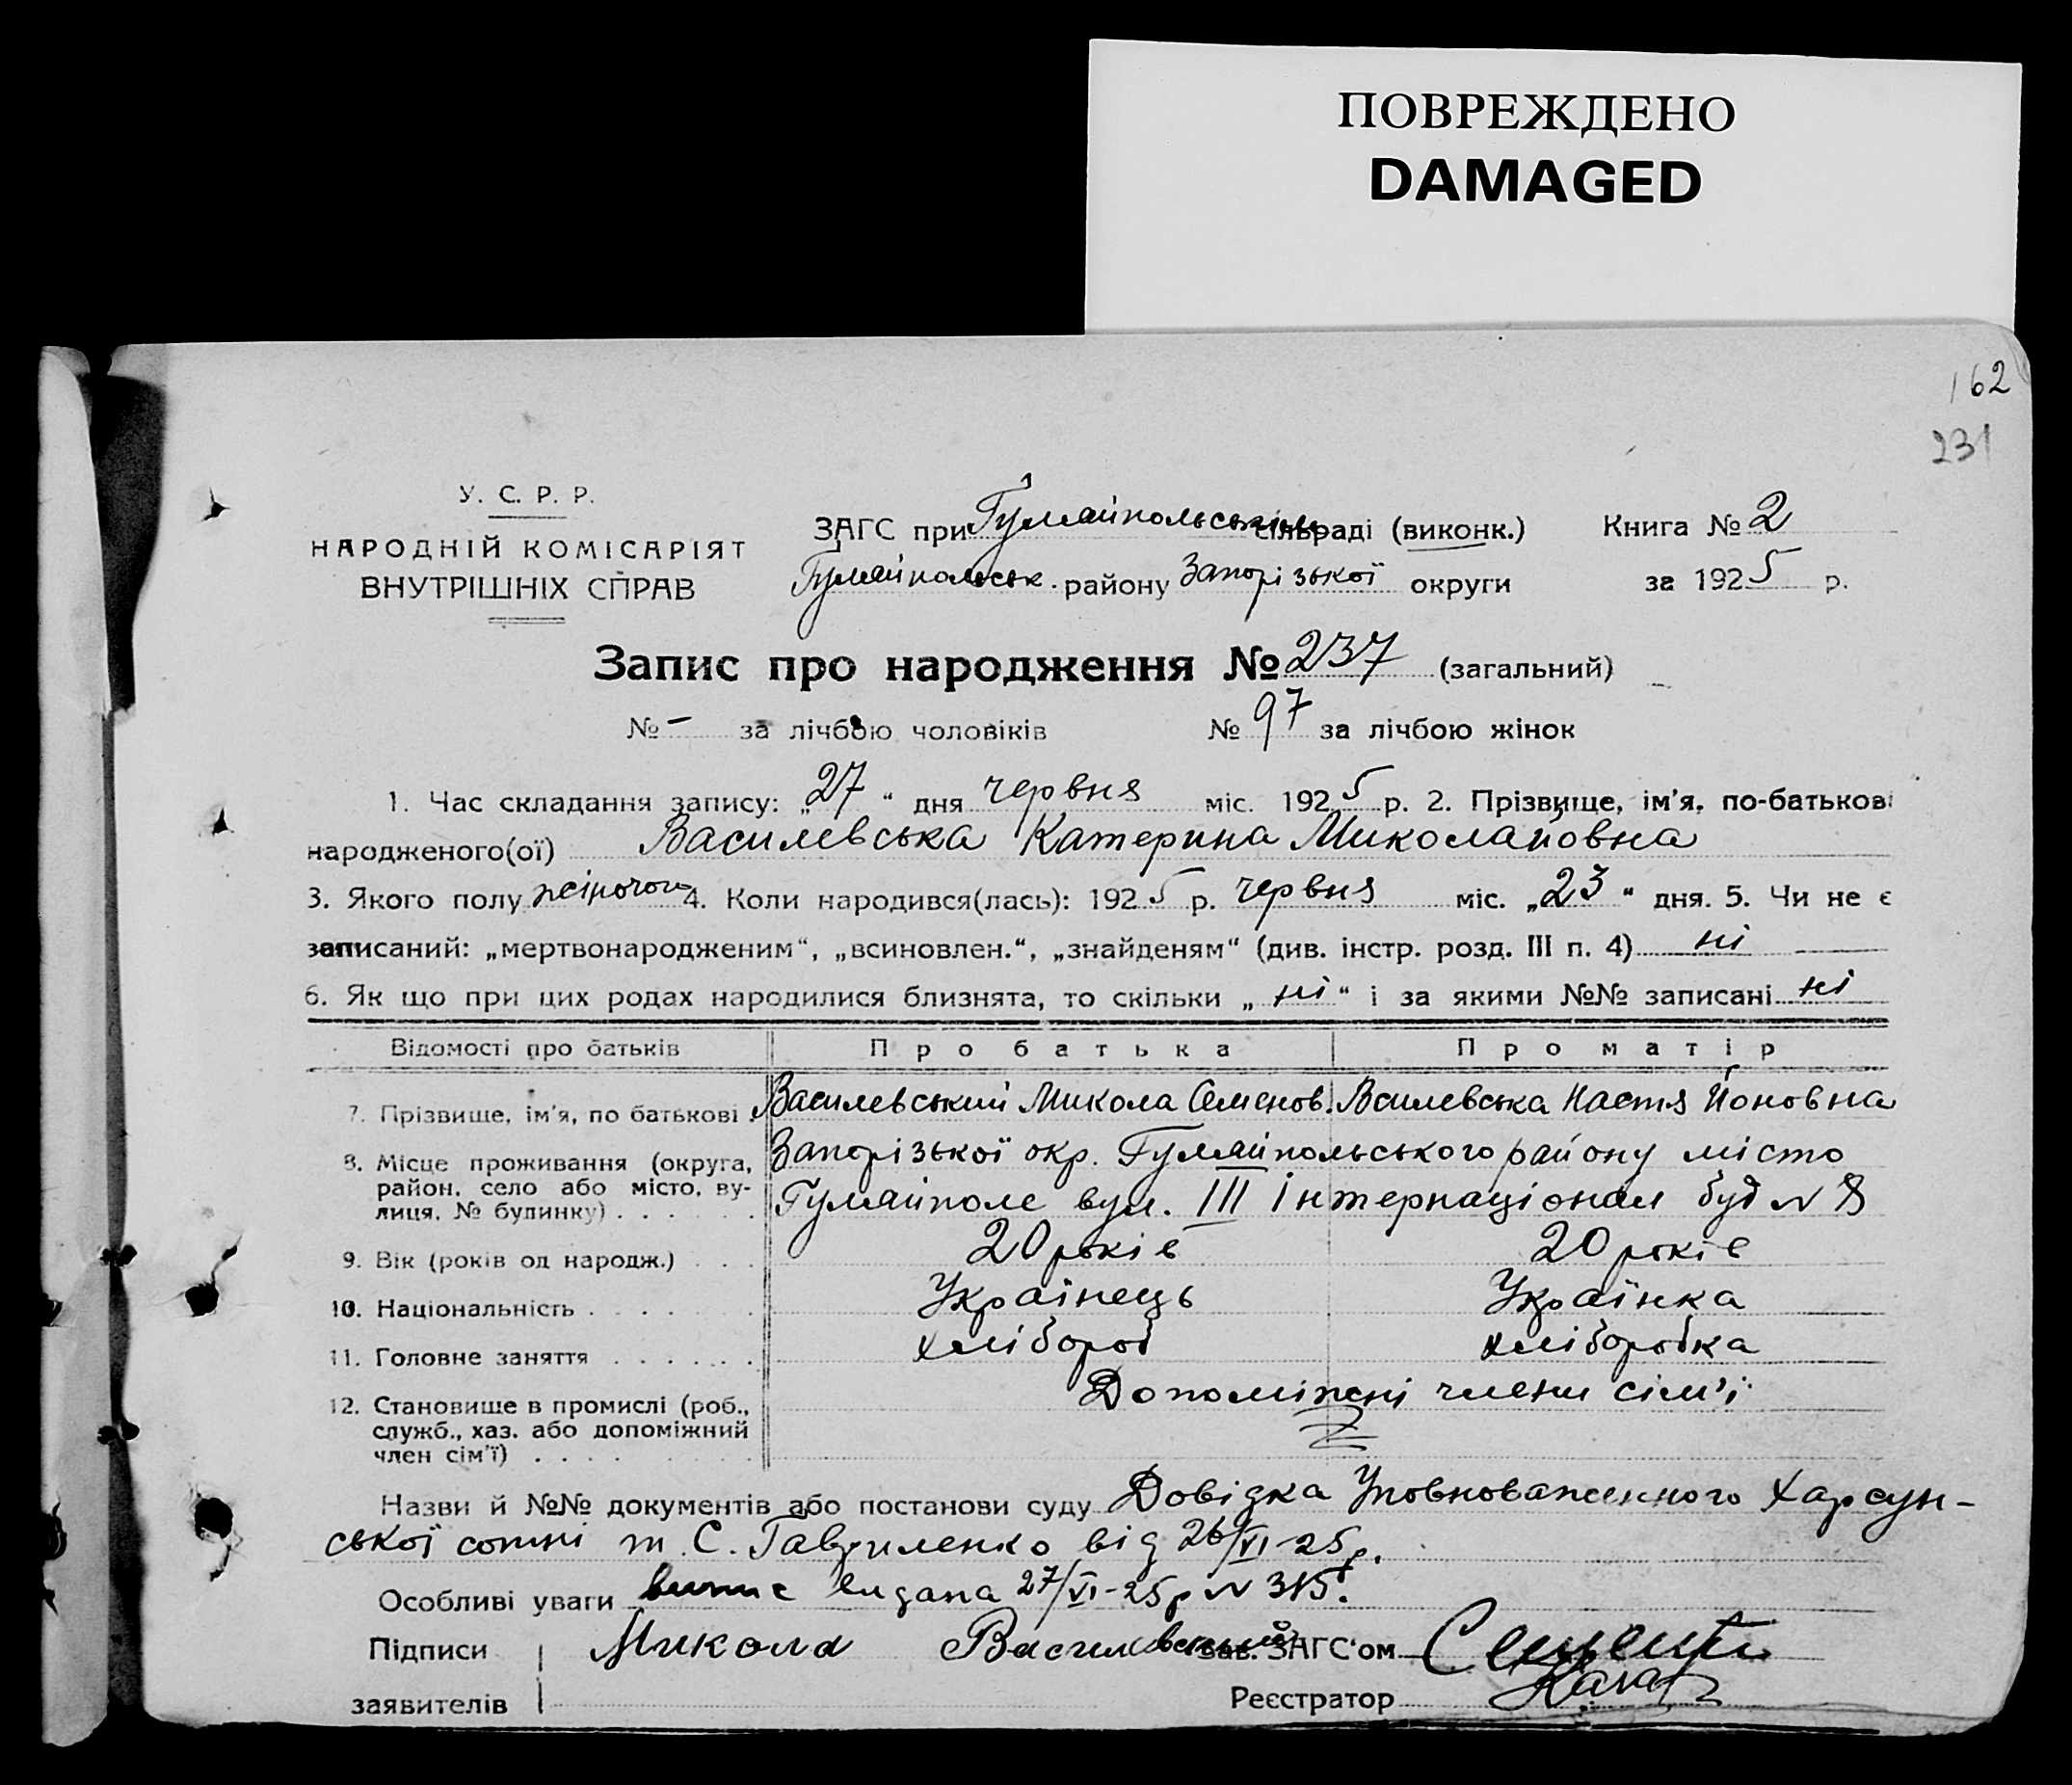 ПОВРЕЖДЕНО
DAMAGED
162
231
У. С. Р. Р.
НАРОДНІЙ КОМІСАРІЯТ
ВНУТРІШНІХ СПРАВ
ЗАГС при Гуляйпольськім сільраді (виконк.) Книга № 2
Гуляйпольськ. району Запорізької округи за 1925 р.
Запис про народження № 237 (загальний)
№ – за лічбою чоловіків № 97 за лічбою жінок
1. Час складання запису: „27“ дня червня міс. 1925 р. 2. Прізвище, ім'я, по-батькові
народженого(ої) Василевська Катерина Миколайовна
3. Якого полу жіночого 4. Коли народився(лась): 1925 р. червня міс. „23“ дня. 5. Чи не є
записаний: „мертвонародженим“, „всиновлен.“, „знайденям“ (див. інстр. розд. III п. 4) ні
6. Як що при цих родах народилися близнята, то скільки „ні“ і за якими №№ записані ні
Відомості про батьків Про батька Про матір
7. Прізвище, ім'я, по батькові Василевський Микола Семенов. Всилевська Настя Йоновна
8. Місце проживання (округа, Запорізької окр. Гуляйпольського району місто
район, село або місто, ву-
лиця, № будинку) . . . . . . Гуляйполе вул. III Інтернаціонал буд № 8
9. Вік (років од народж.) . . . 20 років 20 років
10. Національність . . . . . . . Українець Українка
11. Головне заняття . . . . . . хлібороб хліборобка
12. Становище в промислі (роб., Допоміжні члени сім'ї
служб., хаз. або допоміжний
член сім'ї) . . . .
Назви й №№ документів або постанови суду Довідка Уповноваженного Харсун-
ської сотні т. С. Гавриленко від 26/VI-25р.
Особливі уваги видана 27/VI-25р № 315.
Підписи Микола Василевський Зав. ЗАГС'ом
заявителів Реєстратор